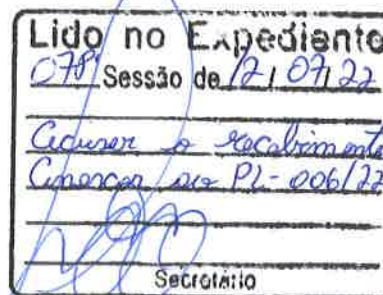 Lido no Expediente
078ª Sessão de 12/07/22
Acusar o recebimento
Anexar ao PL-006/22
Secretário